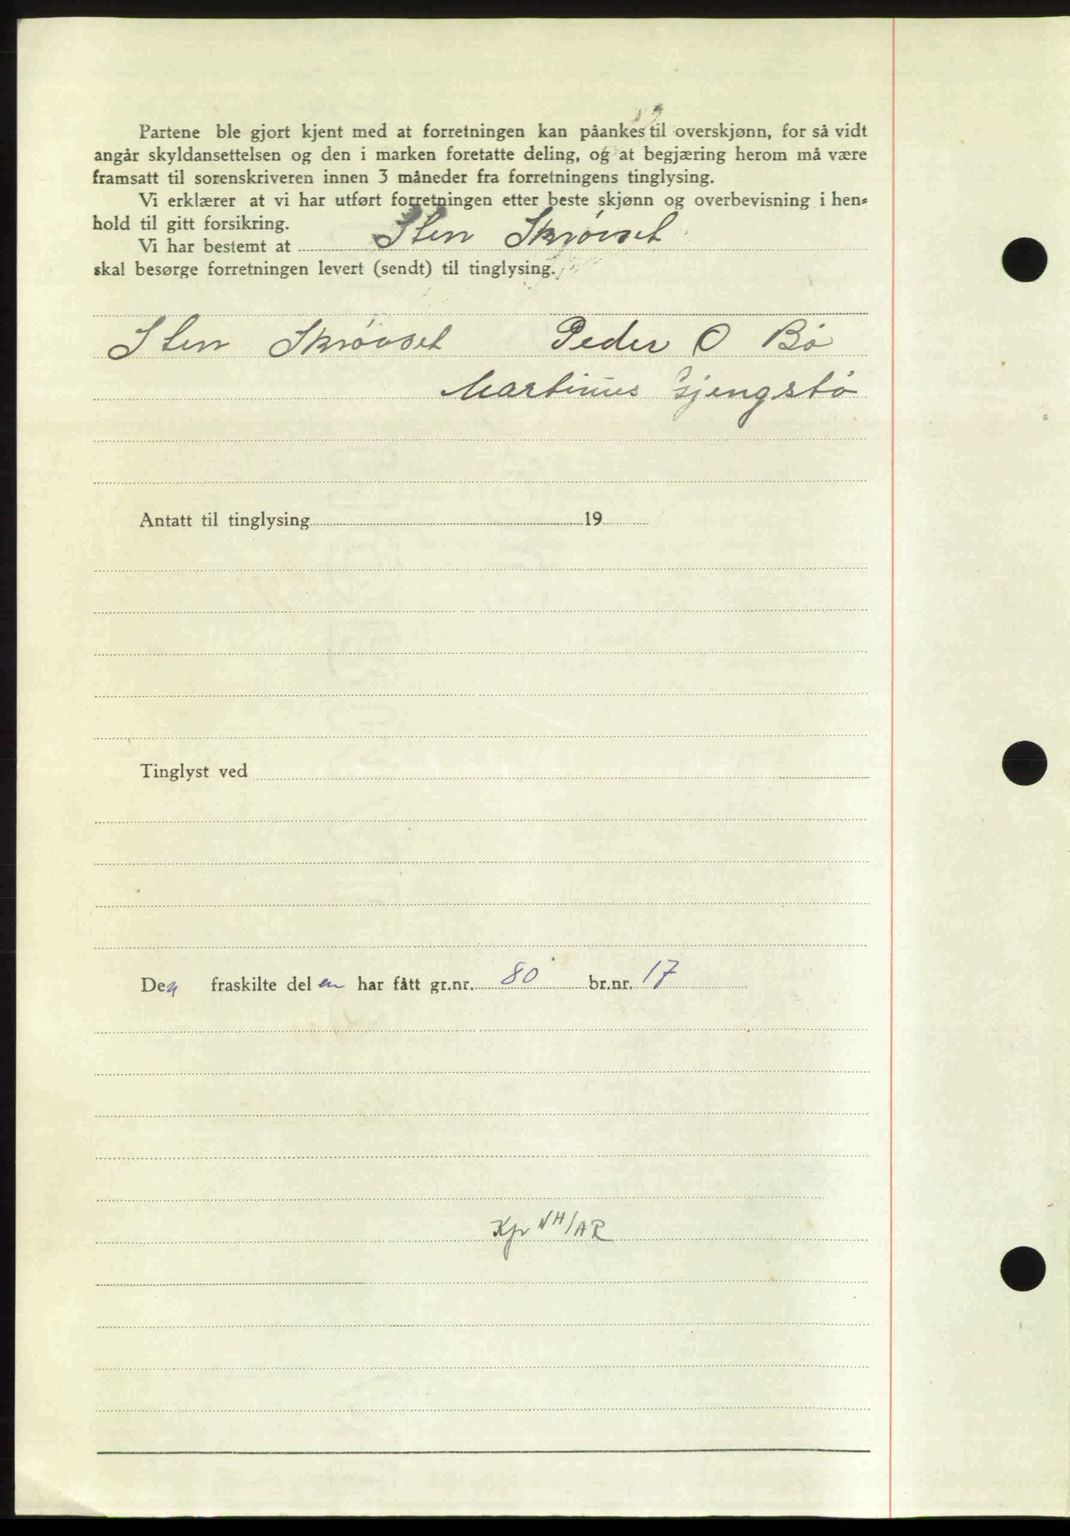 Partene ble gjort kjent med at forretningen kan påankes til overskjønn, for så vidt
angår skyldansettelsen og den i marken foretatte deling, og at begjæring herom må være
framsatt til sorenskriveren innen 3 måneder fra forretningens tinglysing.
Vi erklærer at vi har utført forretningen etter beste skjønn og overbevisning i hen-
hold til gitt forsikring.
Vi har bestemt at Sten Skrövset
skal besørge forretningen levert (sendt) til tinglysing.
Sten Skrövset Peder O Bö
Martinus Gjengstö
Antatt til tinglysing 19
Tinglyst ved
Den fraskilte delen har fått gr.nr. 80 br.nr. 17
Kfr NH/AR